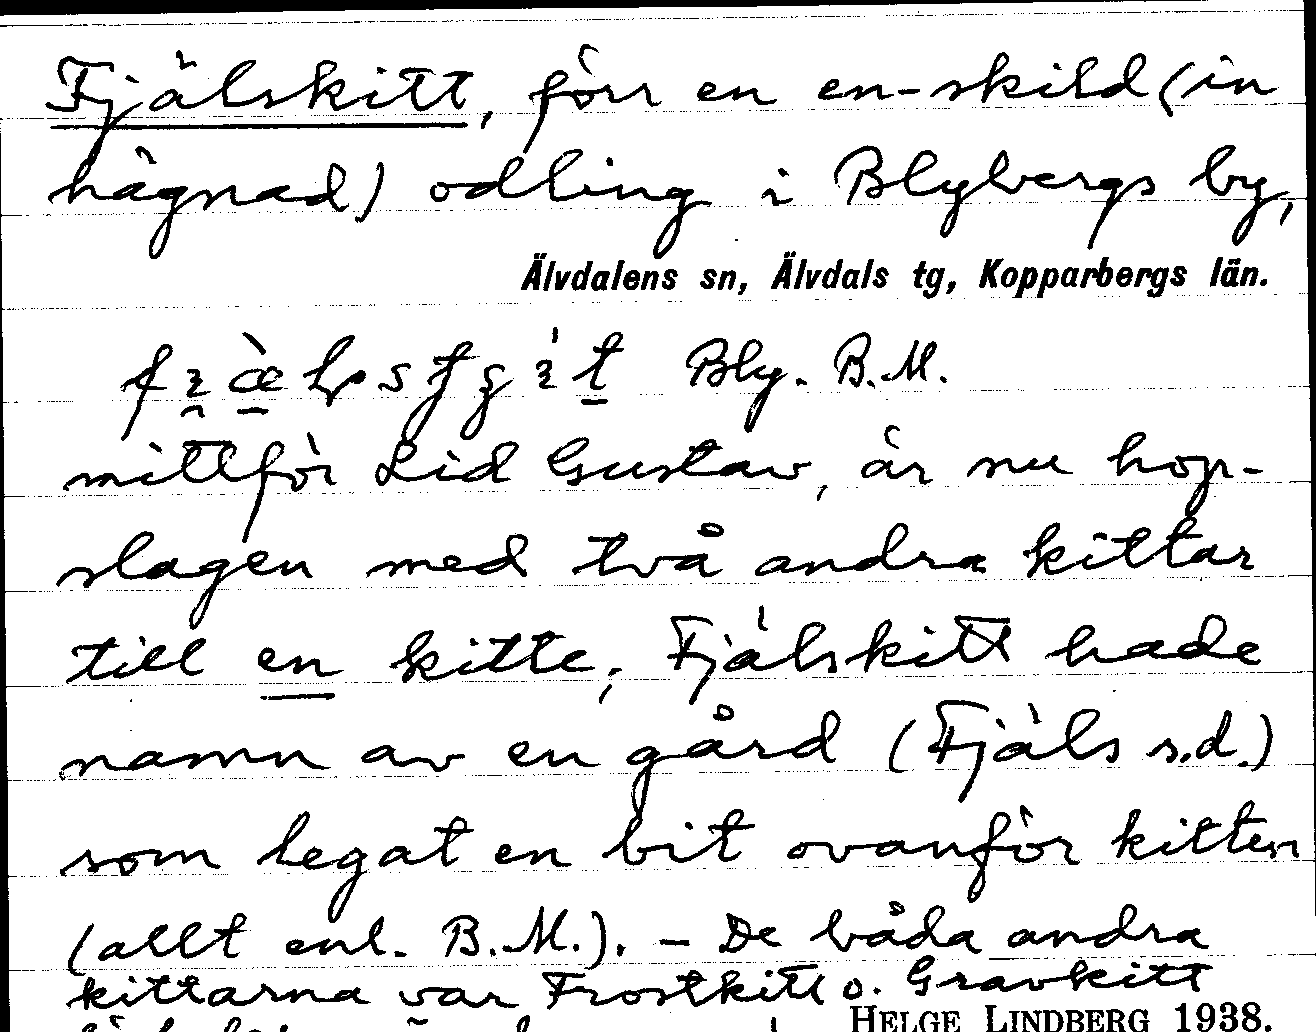 Fjälskitt, förr en en-skild (in
hägnad) odling i Blybergs by,
Älvdalens sn, Älvdals tg, Kopparbergs län.
Bly. B.M.
mittför Lid Gustav, är nu hop-
slagen med två andra kittar
till en kitte, Fjälskitt hade
namn av en gård (Fjäls s.d.)
som legat en bit ovanför kitten
(allt enl. B.M.). - De båda andra
kittarna var Frostkitt o. Gravkitt
HELGE LINDBERG 1938.